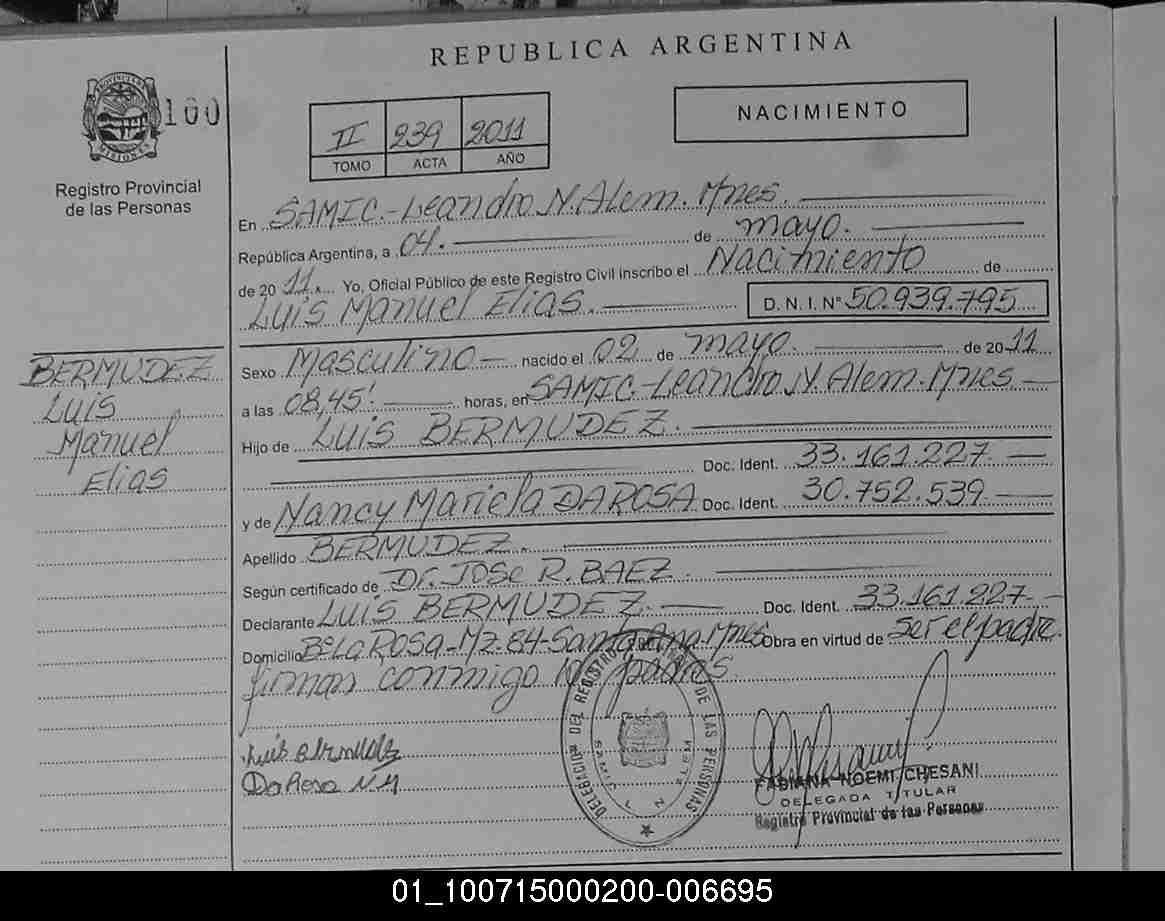 REPUBLICA ARGENTINA
PROVINCIA DE
MISIONES
100
Registro Provincial
de las Personas
II 239 2011
TOMO ACTA AÑO
NACIMIENTO
En SAMIC-Leandro N. Alem. Mnes
República Argentina, a 04. de mayo.
de 2011. Yo, Oficial Público de este Registro Civil inscribo el Nacimiento de
Luis Manuel Elias. D.N.I. N° 50.939.795
Sexo Masculino nacido el 02 de mayo. de 2011
a las 08,45' horas, en SAMIC-Leandro N. Alem. Mnes
Hijo de Luis BERMUDEZ.
Doc. Ident. 33.161.227
y de Nancy Mariela DA ROSA Doc. Ident. 30.752.539
Apellido BERMUDEZ.
Según certificado de Dr. Jose R. BAEZ.
Declarante Luis BERMUDEZ. Doc. Ident. 33.161.227
Domicilio B° LA ROSA-Mz. 84-Santa Ana. Mnes Obra en virtud de Ser el padre.
firman conmigo los padres.
BERMUDEZ
Luis
Manuel
Elias
Luis Bermudez
Da Rosa N M
DELEGACION DEL REGISTRO DE LAS PERSONAS
SAMIC L N ALEM
FABIANA NOEMI CHESANI
DELEGADA TITULAR
Registro Provincial de las Personas
01_100715000200-006695